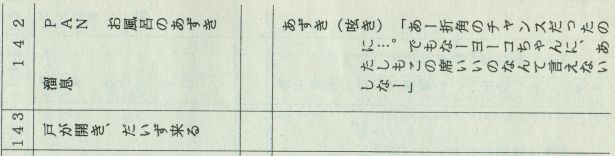 142
PAN　お風呂のあずき
溜息
あずき（呟き）「あー折角のチャンスだったの
に…。でもなーヨーコちゃんに、あ
たしもこの席いいのなんて言えない
しなー」
143
戸が開き、だいず来る